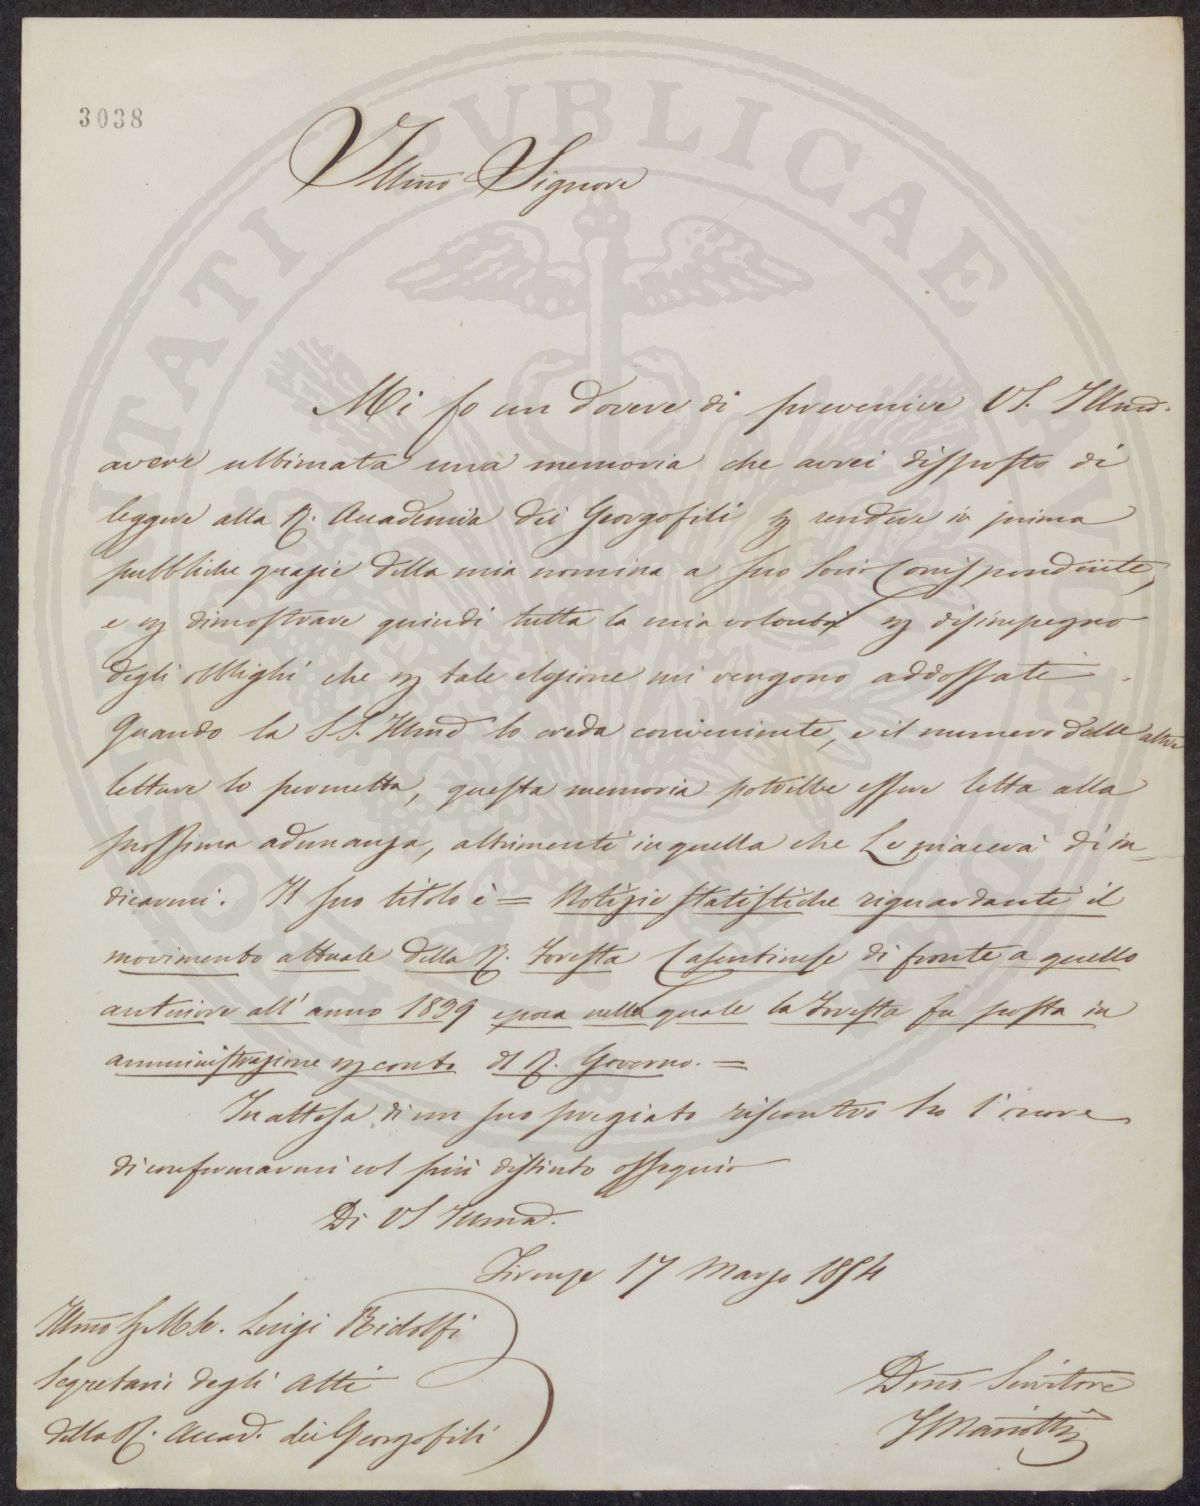 3038
Illmo Signore
Mi fo un dovere di prevenire VS. Illma.
avere ultimata una memoria che avrei disposto di
leggere alla R. Accademia dei Georgofili p rendere in prima
pubbliche grazie della mia nomina a suo Socio Corrispondente,
e p dimostrare quindi tutta la mia volontà p disimpegno
degli obblighi che p tale elezione mi vengono addossati.
Quando la S.S. Illma lo creda conveniente, e il numero delle altre
letture lo permetta, questa memoria potrebbe essere letta alla
prossima adunanza, altrimenti in quella che Le piacerà di in-
dicarmi. Il suo titolo è = Notizie statistiche riguardanti il
movimento attuale della R. Foresta Casentinese di fronte a quello
anteriore all'anno 1839 epoca nella quale la Foresta fu posta in
amministrazione p conto d R. Governo. =
In attesa di un suo pregiato riscontro ho l'onore
di confermarmi col più distinto ossequio
Di VS Illma.
Firenze 17 Marzo 1854
Illmo Luigi Ridolfi
Segretario degli Atti
della R. Accad. dei Georgofili
Servitore
Mariotti
PUBLICAE